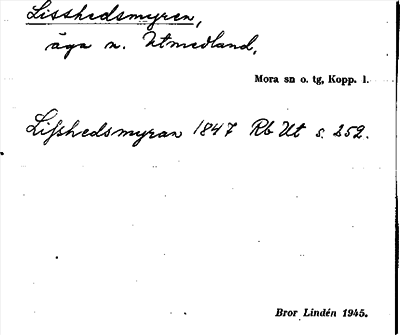 Lisshedsmyren,
äga n. Utmedland.
Mora sn o. tg, Kopp. l.
Lifshedsmyran 1847 Rb Ut s. 252.
Bror Lindén 1945.